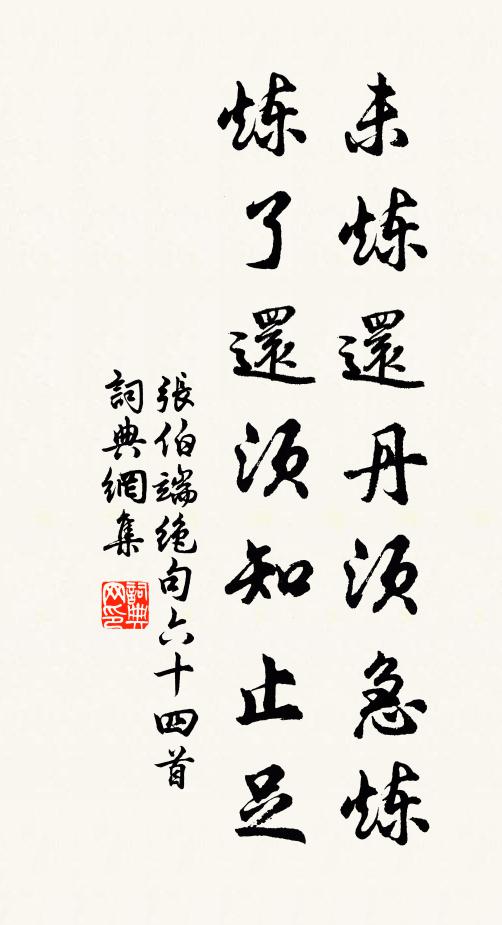 未炼還丹須急炼
炼了還須知止足
張伯端絶句六十四首
詞典網集
詞典网印